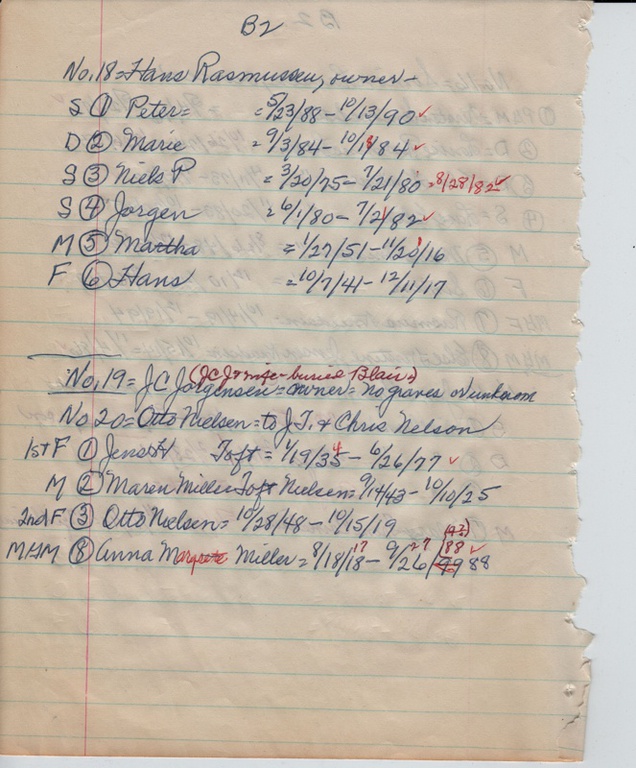 B2
No. 18 = Hans Rasmussen, owner -
S ① Peter = = 5/23/88 - 10/13/90 ✓
D ② Marie = 9/3/84 - 10/18/84 ✓
S ③ Niels P = 3/20/75 - 7/21/80 = 8/28/82 ✓
S ④ Jorgen = 6/1/80 - 7/21/82 ✓
M ⑤ Martha = 1/27/51 - 11/20/16
F ⑥ Hans = 10/7/41 - 12/11/17
(JCJ & wife - buried Blair)
No. 19 = JC Jorgensen = owner = No graves or unknown
No 20 = Otto Nielsen = to J.T. & Chris Nelson
1st F ① Jens Toft = 1/19/35 4 - 6/26/77 ✓
M ② Maren Miller Toft Nielsen = 9/14/43 - 10/10/25
2nd F ③ Otto Nielsen = 10/28/48 - 10/15/19
(92)
MHM ⑧ Anna Miller = 8/18/18 17 - 9/26 27/99 88 88 ✓